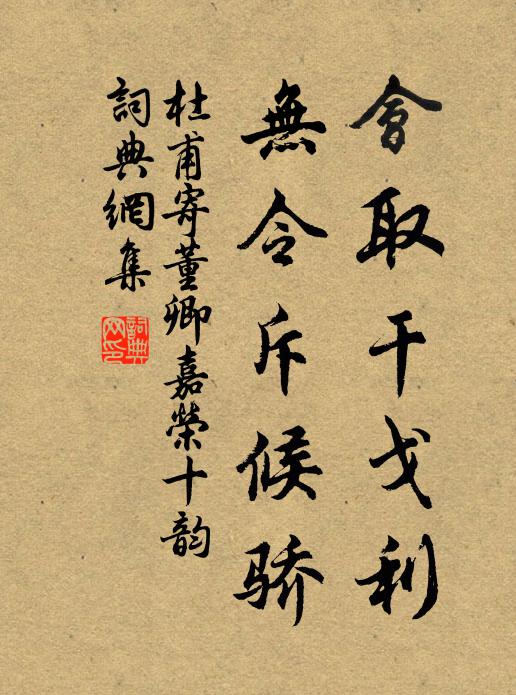 會取干戈利
無令斥候骄
杜甫寄董卿嘉榮十韵
詞典網集
詞典网印